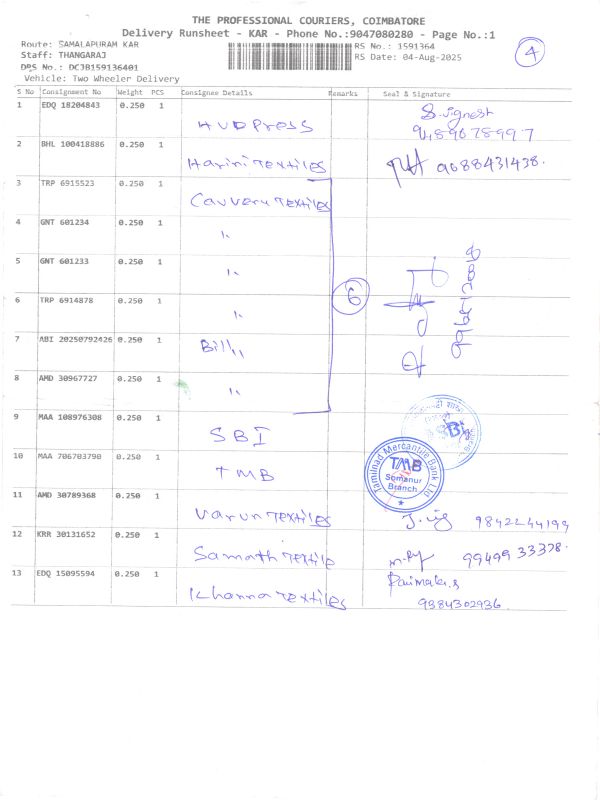 THE PROFESSIONAL COURIERS, COIMBATORE
Delivery Runsheet - KAR - Phone No.:9047080280 - Page No.:1
Route: SAMALAPURAM KAR RS No.: 1591364
Staff: THANGARAJ RS Date: 04-Aug-2025
DRS No.: DCJB159136401
Vehicle: Two Wheeler Delivery
4
S No Consignment No Weight PCS Consignee Details Remarks Seal & Signature
1 EDQ 18204843 0.250 1 HVD Press S. vignesh
2 BHL 100418886 0.250 1 Harini Textiles 9688431438.
3 TRP 6915523 0.250 1 Cauvery Textiles
4 GNT 601234 0.250 1 "
5 GNT 601233 0.250 1 "
6
6 TRP 6914878 0.250 1 "
7 ABI 20250792426 0.250 1 Bill "
8 AMD 30967727 0.250 1 "
9 MAA 108976308 0.250 1 SBI
10 MAA 706703790 0.250 1 TMB
Tamilnad Mercantile Bank Ltd
TMB
Somanur
Branch
11 AMD 30789368 0.250 1 Varun Textiles 9842244199
12 KRR 30131652 0.250 1 Samath Textile 99499 33378.
13 EDQ 15095594 0.250 1 Khanna Textiles
9384302936